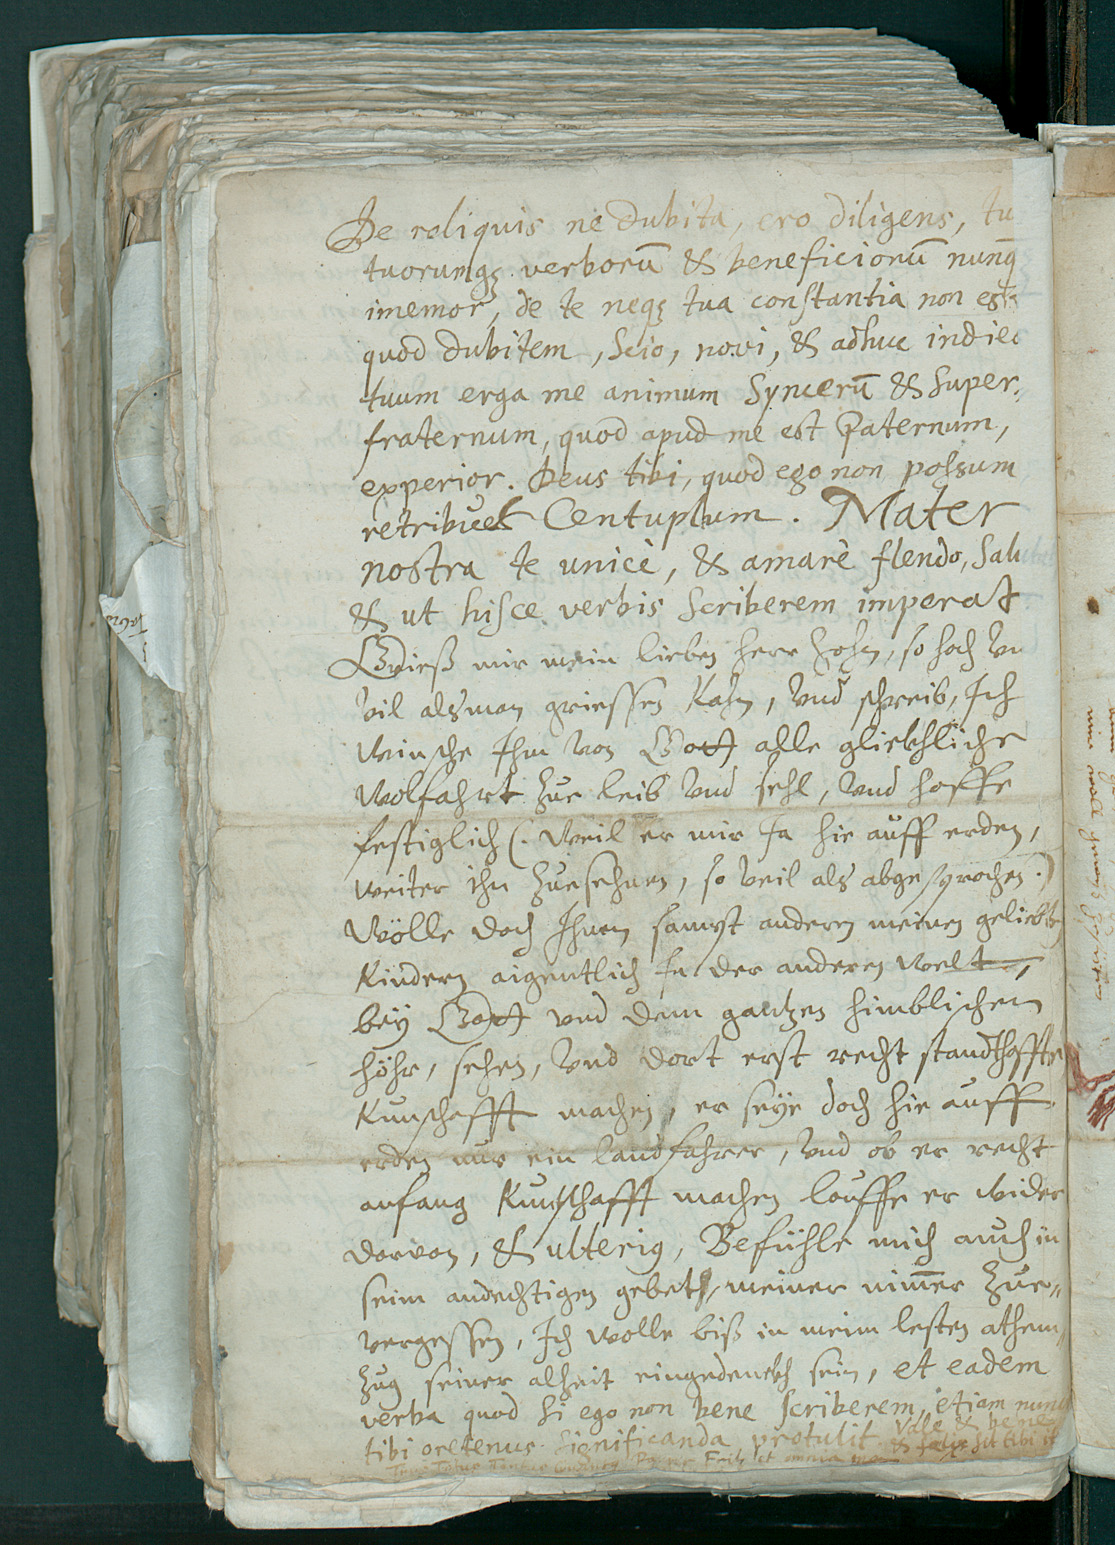 De reliquis ne dubita, ero diligens, tu
tuorumq; verborū & beneficiorū nunq̄
imemor, de te neq; tua constantia non est
quod dubitem, Scio, novi, & adhuc indies
tuum erga me animum Syncerū & super,
fraternum, quod apud me est Paternum,
experior. Deus tibi, quod ego non possum
retribuet Centuplum. Mater
nostra te unicè, & amarè flendo, Salu
& ut hisce verbis scriberem imperat
Grieß mir mein lieben herr Sohn, so hoch vn
vil alß man griessen Kahn, vnd schreib, Ich
winsche Ihm von Gott alle glickhliche
wolfahrt zue leib vnd sehl, vnd hoffe
festiglich (. weil er mir Ja hie auff erden,
weiter ihn zuesehnen, so veil als abgesprochen .)
wölle doch Ihnen sampt andern meinen geliebten
Kindern aigentlich in der anderen welt,
bey Gott vnd dem gantzen himblischen
höhr, sehen, vnd dort erst recht standthaffte
Kunschafft machen, er seye doch hie auff
erden nur ein landfahrer, vnd ob er recht
anfang Kunschafft machen lauffe er wider
darvon, & ulterig, Befühle mich auch in
seim andechtigen gebeth, meiner nimer zue,,
vergessen, Ich wolle biß in meim lesten athem,
zug seiner alzeit eingedenckh sein, et eadem
verba quod hi ego non bene scriberem, etiam nunc
tibi oretenus significanda protulit Vale & bene
& felix sit tibi
Fritz et omnia